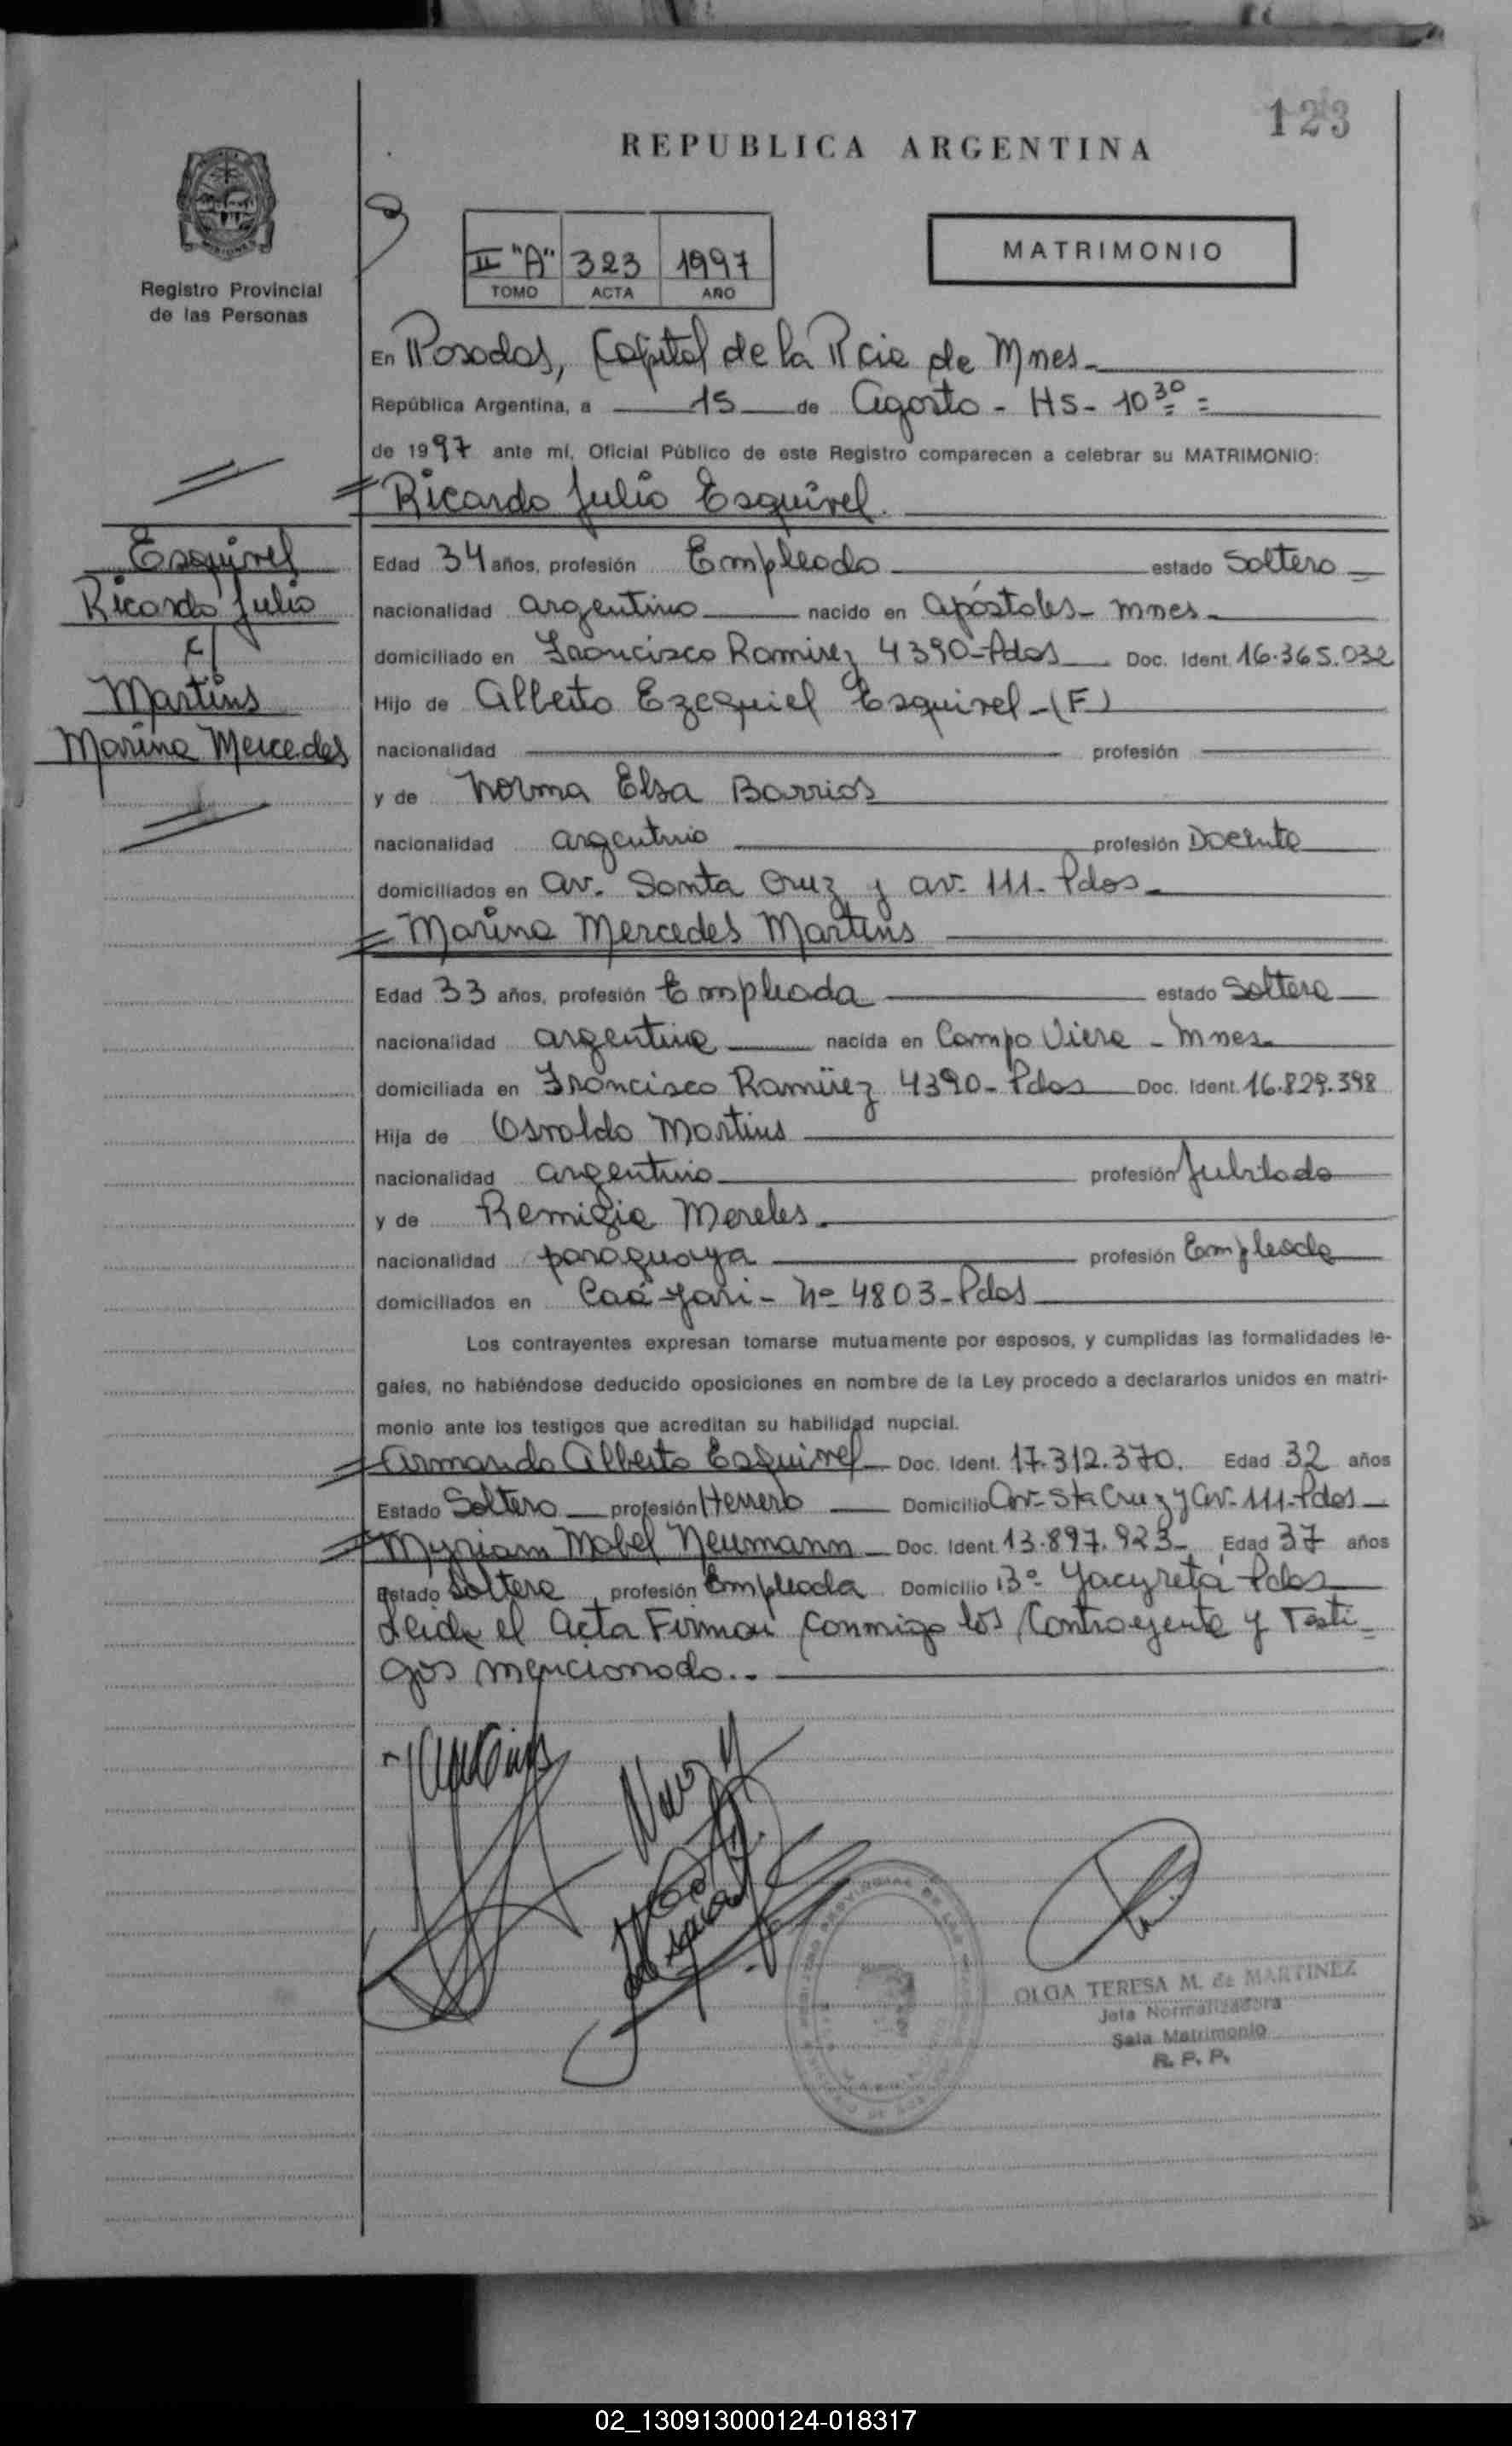 123
REPUBLICA ARGENTINA
MATRIMONIO
Registro Provincial
de las Personas
II "A" 323 1997
TOMO ACTA AÑO
En Posadas, Capital de la Pcia de Mnes-
República Argentina, a 15 de Agosto - HS- 10 30 =
de 1997 ante mí, Oficial Público de este Registro comparecen a celebrar su MATRIMONIO:
Ricardo Julio Esquivel.
Esquivel
Ricardo Julio
c/
Martins
Marina Mercedes
Edad 34 años, profesión Empleado estado Soltero
nacionalidad argentino nacido en Apóstoles- Mnes-
domiciliado en Francisco Ramirez 4390-Pdas Doc. Ident. 16.365.032
Hijo de Alberto Ezequiel Esquivel-(F)
nacionalidad profesión
y de Norma Elsa Barrios
nacionalidad argentina profesión Docente
domiciliados en Av. Santa Cruz y av. 111- Pdas-
Marina Mercedes Martins
Edad 33 años, profesión Empleada estado Soltera
nacionalidad argentina nacida en Campo Viera - Mnes-
domiciliada en Francisco Ramirez 4390- Pdas Doc. Ident. 16.829.398
Hija de Osvaldo Martins
nacionalidad argentino profesión Jubilado
y de Remigia Mereles.
nacionalidad paraguaya profesión Empleada
domiciliados en Caá-Yari- Nº 4803-Pdas
Los contrayentes expresan tomarse mutuamente por esposos, y cumplidas las formalidades le-
gales, no habiéndose deducido oposiciones en nombre de la Ley procedo a declararlos unidos en matri-
monio ante los testigos que acreditan su habilidad nupcial.
Armando Alberto Esquivel Doc. Ident. 17.312.370. Edad 32 años
Estado Soltero profesión Herrero Domicilio Av- Sta Cruz y Av- 111-Pdas
Myriam Mabel Neumann Doc. Ident. 13.897.923- Edad 37 años
Estado Soltera profesión Empleada Domicilio Bº Yacyretá Pdas
Leida el Acta Firman conmigo los Contrayente y Testi-
gos mencionado..-
OLGA TERESA M. de MARTINEZ
Jefa Normalizadora
Sala Matrimonio
R. P. P.
02_130913000124-018317